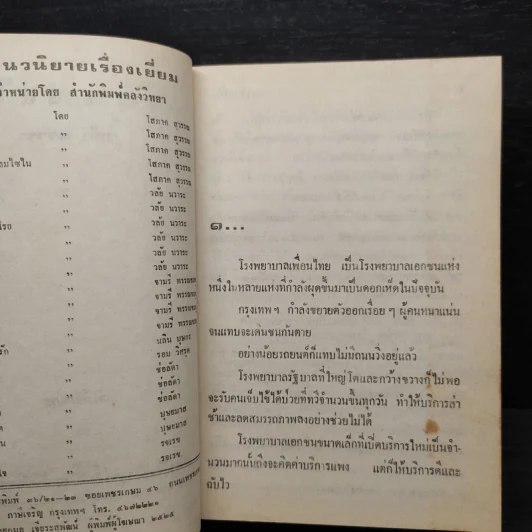 นวนิยายเรื่องเยี่ยม
จำหน่ายโดย สำนักพิมพ์คลังวิทยา
โดย โสภาค สุวรรณ
" โสภาค สุวรรณ
" โสภาค สุวรรณ
" โสภาค สุวรรณ
" โสภาค สุวรรณ
" วลัย นวาระ
" วลัย นวาระ
" วลัย นวาระ
" วลัย นวาระ
" วลัย นวาระ
" จามรี พรรณชมพู
" จามรี พรรณชมพู
" จามรี พรรณชมพู
" นลิน บุษกร
รัก " รอม วิสุรุต
" ช่อลัดา
" ช่อลัดา
" บุษยมาส
" บุษยมาส
" รจเรข
" รจเรข
พิมพ์ ๓๖/๒๑-๒๓ ซอยเพชรเกษม ๔๖ ถนนเพชร
ภาษีเจริญ กรุงเทพฯ โทร.
เจียระสพัฒน์ ผู้พิมพ์ผู้โฆษณา ๒๕๒๕
๑...
โรงพยาบาลเพื่อนไทย เป็นโรงพยาบาลเอกชนแห่ง
หนึ่งในหลายแห่งที่กำลังผุดขึ้นมาเป็นดอกเห็ดในปัจจุบัน
กรุงเทพฯ กำลังขยายตัวออกเรื่อยๆ ผู้คนหนาแน่น
จนแทบจะเดินชนกันตาย
อย่างน้อยรถยนต์ก็แทบไม่มีถนนวิ่งอยู่แล้ว
โรงพยาบาลรัฐบาลที่ใหญ่โตและกว้างขวางก็ไม่พอ
จะรับคนเจ็บไข้ได้ป่วยที่ทวีจำนวนขึ้นทุกวัน ทำให้บริการล่า
ช้าและลดสมรรถภาพลงอย่างช่วยไม่ได้
โรงพยาบาลเอกชนขนาดเล็กที่เปิดบริการใหม่เป็นจำ-
นวนมากนั้นถึงจะคิดค่าบริการแพง แต่ก็ให้บริการดีและ
ฉับไว